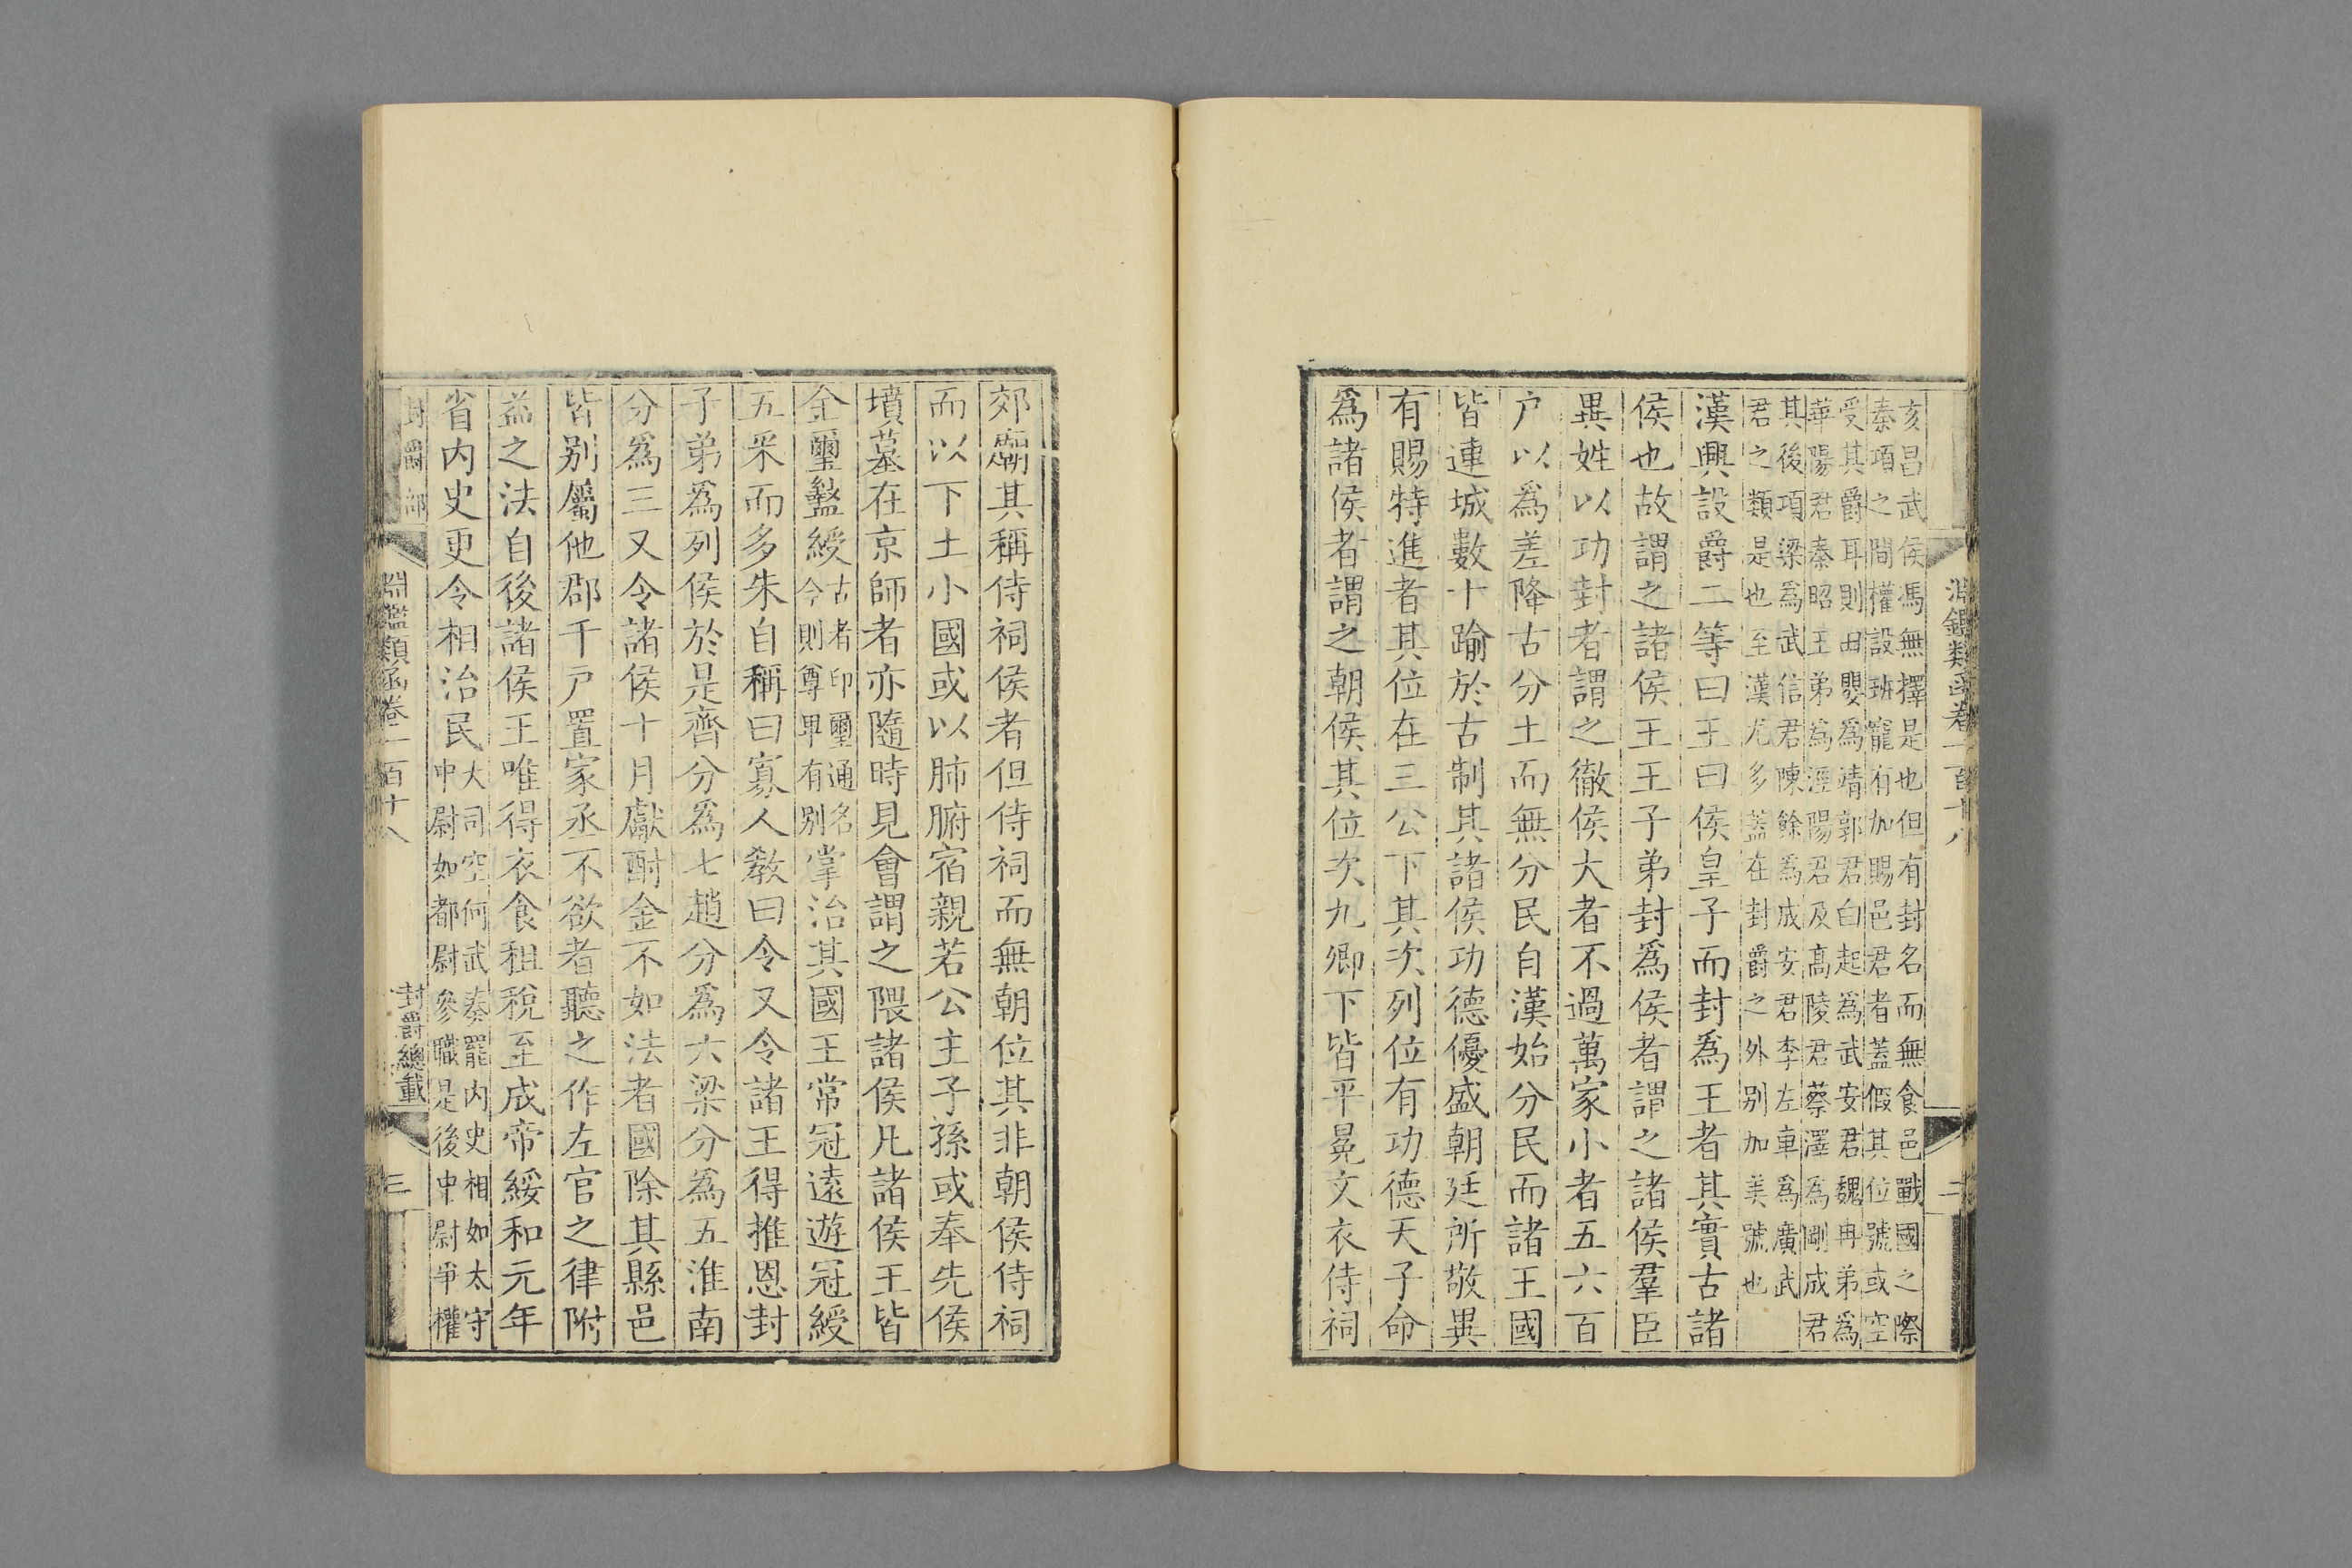 淵鑑類函卷一百十八
二
亥昌武侯馮無擇是也但有封名而無食邑戰國之際
秦項之間權設班寵有加賜邑君者蓋假其位號或空
受其爵耳則田嬰為靖郭君白起為武安君魏冉弟為
華陽君秦昭王弟為涇陽君及高陵君蔡澤為剛成君
其後項梁為武信君陳餘為成安君李左車為廣武
君之類是也至漢尤多蓋在封爵之外別加美號也
漢興設爵二等曰王曰侯皇子而封為王者其實古諸
侯也故謂之諸侯王王子弟封為侯者謂之諸侯羣臣
異姓以功封者謂之徹侯大者不過萬家小者五六百
戶以為差降古分土而無分民自漢始分民而諸王國
皆連城數十踰於古制其諸侯功德優盛朝廷所敬異
有賜特進者其位在三公下其次列位有功德天子命
為諸侯者謂之朝侯其位次九卿下皆平冕文衣侍祠
郊廟其稱侍祠侯者但侍祠而無朝位其非朝侯侍祠
而以下土小國或以肺腑宿親若公主子孫或奉先侯
墳墓在京師者亦隨時見會謂之隈諸侯凡諸侯王皆
金璽盭綬古者印璽通名今則尊卑有別掌治其國王常冠遠遊冠綬
五采而多朱自稱曰寡人教曰令又令諸王得推恩封
子弟為列侯於是齊分為七趙分為六梁分為五淮南
分為三又令諸侯十月獻酎金不如法者國除其縣邑
皆別屬他郡千戶置家丞不欲者聽之作左官之律附
益之法自後諸侯王唯得衣食租稅至成帝綏和元年
省內史更令相治民大司空何武奏罷內史相如太守中尉如都尉參職是後中尉爭權
封爵部
淵鑑類函卷一百十八
封爵總載
三